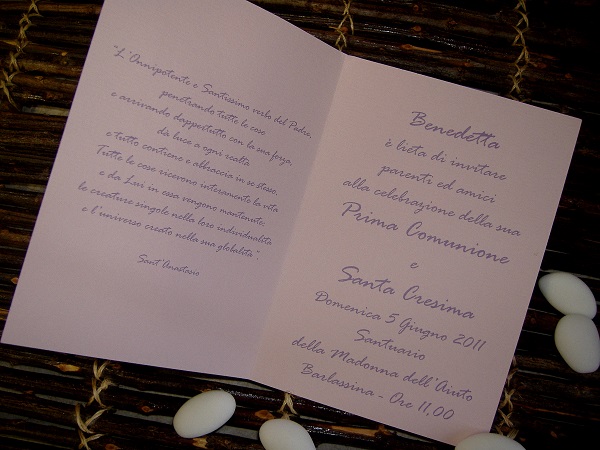 "L'Onnipotente e Santissimo verbo del Padre,
penetrando tutte le cose
e arrivando dappertutto con la sua forza,
dà luce a ogni realtà
e tutto contiene e abbraccia in se stesso.
Tutte le cose ricevono interamente la vita
e da Lui in essa vengono mantenute:
le creature singole nella loro individualità
e l'universo creato nella sua globalità".
Sant'Anastasio
Benedetta
è lieta di invitare
parenti ed amici
alla celebrazione della sua
Prima Comunione
e
Santa Cresima
Domenica 5 Giugno 2011
Santuario
della Madonna dell'Aiuto
Barlassina - Ore 11,00